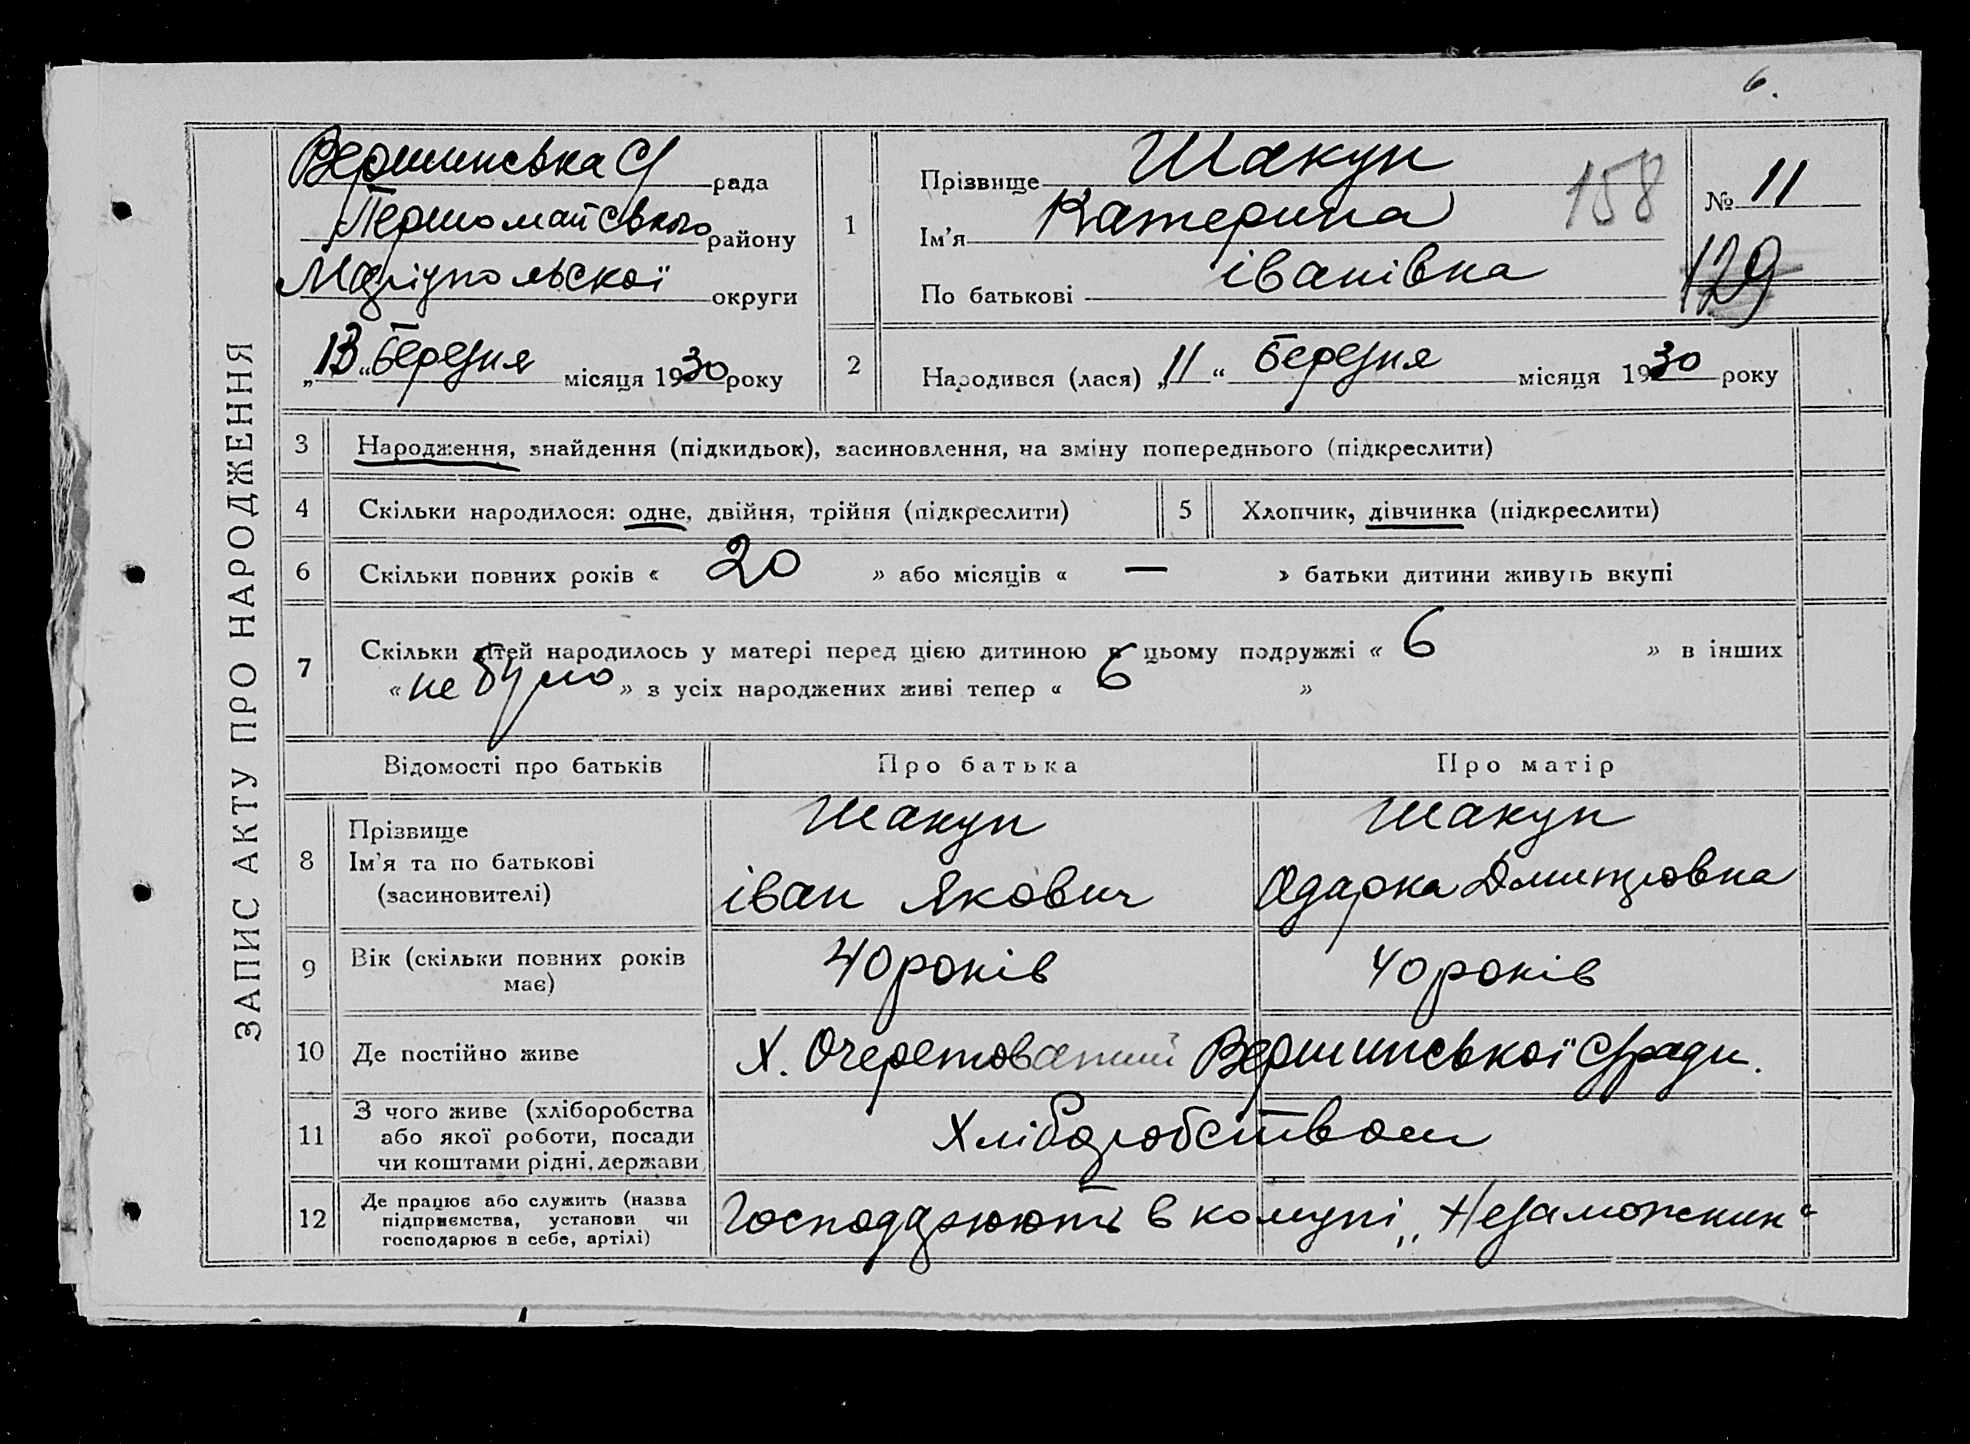 6.
ЗАПИС АКТУ ПРО НАРОДЖЕННЯ
Вершинська С/ рада
Першомайського району
Маріупольскої округи
„13“ березня місяця 1930 року
1
Прізвище Шакун
Ім’я Катерина
По батькові іванівна
158
№ 11
129
2
Народився (лася) „11“ березня місяця 1930 року
3 Народження, знайдення (підкидьок), засиновлення, на зміну попереднього (підкреслити)
4 Скільки народилося: одне, двійня, трійня (підкреслити) 5 Хлопчик, дівчинка (підкреслити)
6 Скільки повних років « 20 » або місяців « — » батьки дитини живуть вкупі
7 Скільки дітей народилось у матері перед цією дитиною в цьому подружжі « 6 » в інших
« не було » з усіх народжених живі тепер « 6 »
Відомості про батьків Про батька Про матір
8 Прізвище
Ім’я та по батькові
(засиновителі)
Шакун
іван Якович
Шакун
Одарка Дмитровна
9 Вік (скільки повних років
має)
40 років 40 років
10 Де постійно живе х. Очеретоватий Вершинської С/ради.
11 З чого живе (хліборобства
або якої роботи, посади
чи коштами рідні, держави)
Хліборобством
12 Де працює або служить (назва
підприємства, установи чи
господарює в себе, артілі)
Господарюють в комуні „Незаможник“